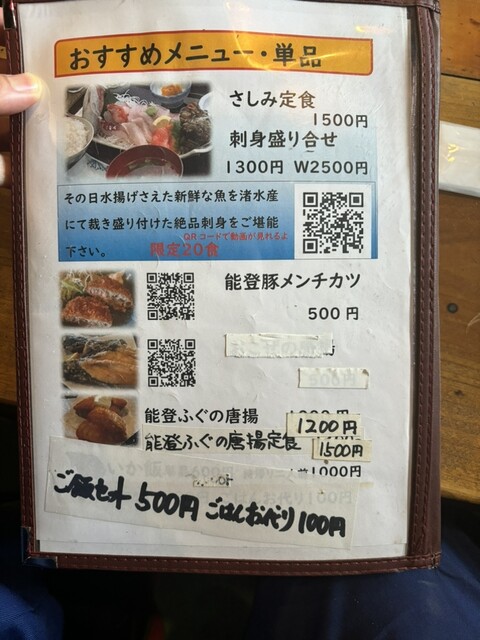 おすすめメニュー・単品
さしみ定食
1500円
刺身盛り合せ
1300円 W2500円
その日水揚げさえた新鮮な魚を渚水産
にて裁き盛り付けた絶品刺身をご堪能
QRコードで動画が見れるよ
下さい。 限定20食
能登豚メンチカツ
500円
500円
能登ふぐの唐揚
1200円
能登ふぐの唐揚定食 1500円
いか飯 1000円
ご飯セット500円 ごはんお代り100円